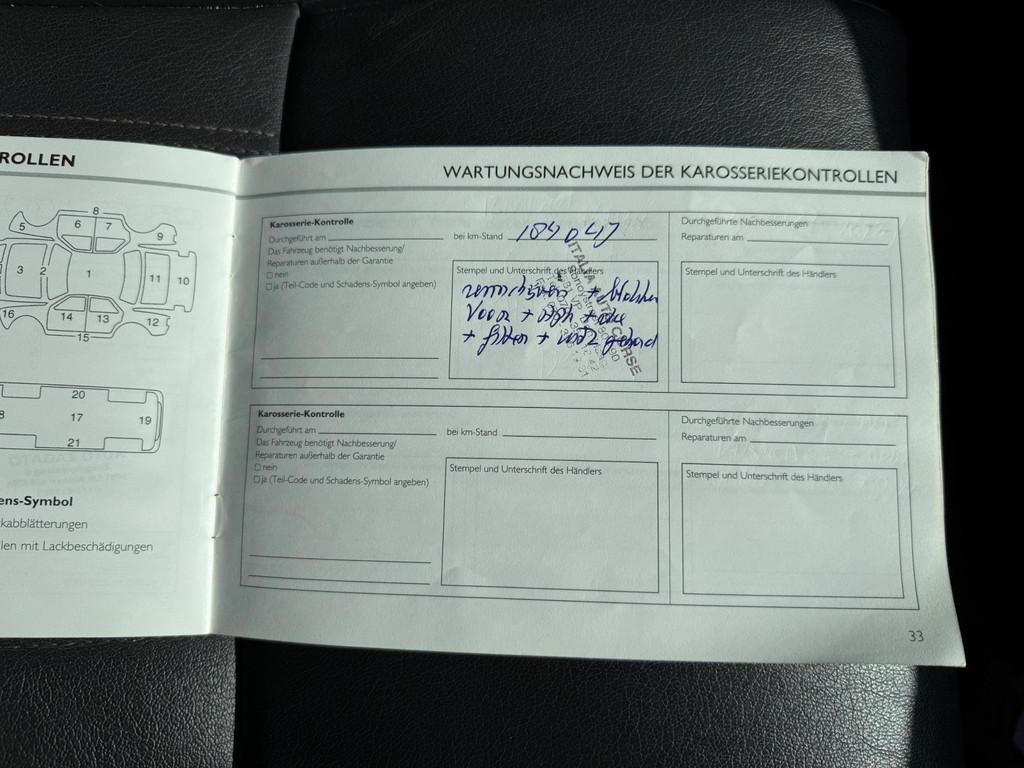 ROLLEN
8
5
6
7
9
3
2
1
11
10
16
14
13
12
15
20
8
17
19
21
ens-Symbol
kabblätterungen
len mit Lackbeschädigungen
WARTUNGSNACHWEIS DER KAROSSERIEKONTROLLEN
Karosserie-Kontrolle
Durchgeführt am
bei km-Stand
Das Fahrzeug benötigt Nachbesserung/
Reparaturen außerhalb der Garantie
nein
ja (Teil-Code und Schadens-Symbol angeben)
Stempel und Unterschrift des Händlers
ITALIA AUTO CORSE
Durchgeführte Nachbesserungen
Reparaturen am
Stempel und Unterschrift des Händlers
Karosserie-Kontrolle
Durchgeführt am
bei km-Stand
Das Fahrzeug benötigt Nachbesserung/
Reparaturen außerhalb der Garantie
nein
ja (Teil-Code und Schadens-Symbol angeben)
Stempel und Unterschrift des Händlers
Durchgeführte Nachbesserungen
Reparaturen am
Stempel und Unterschrift des Händlers
33